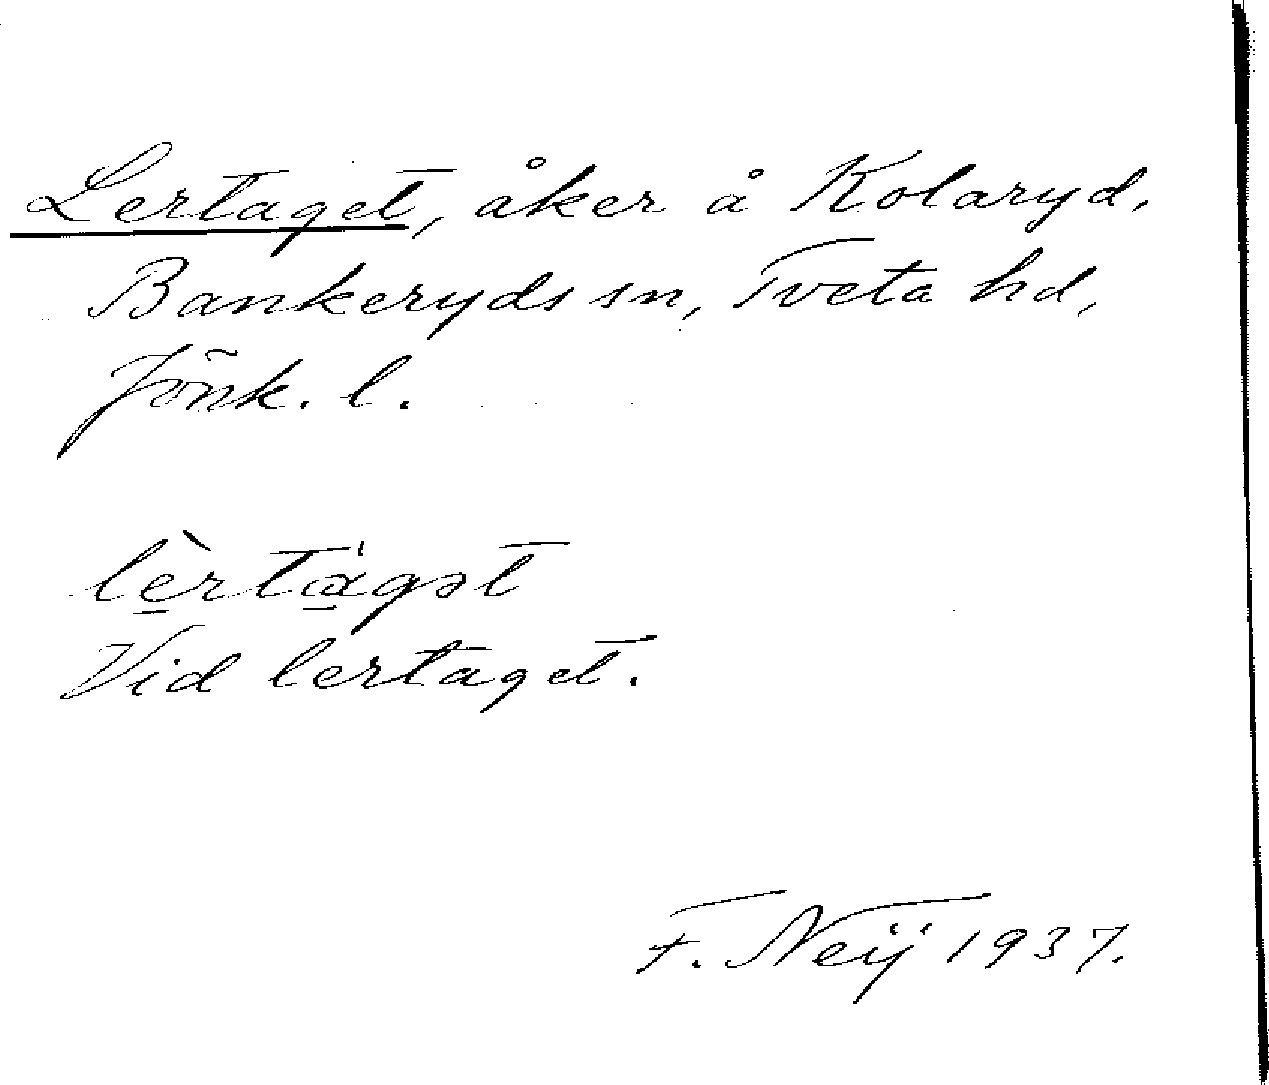 Lertaget, åker å Kolaryd,
Bankeryds sn, Tveta hd,
Jönk. l.
lè̱rta̱̍gət
Vid lertaget.
F. Neij 1937.